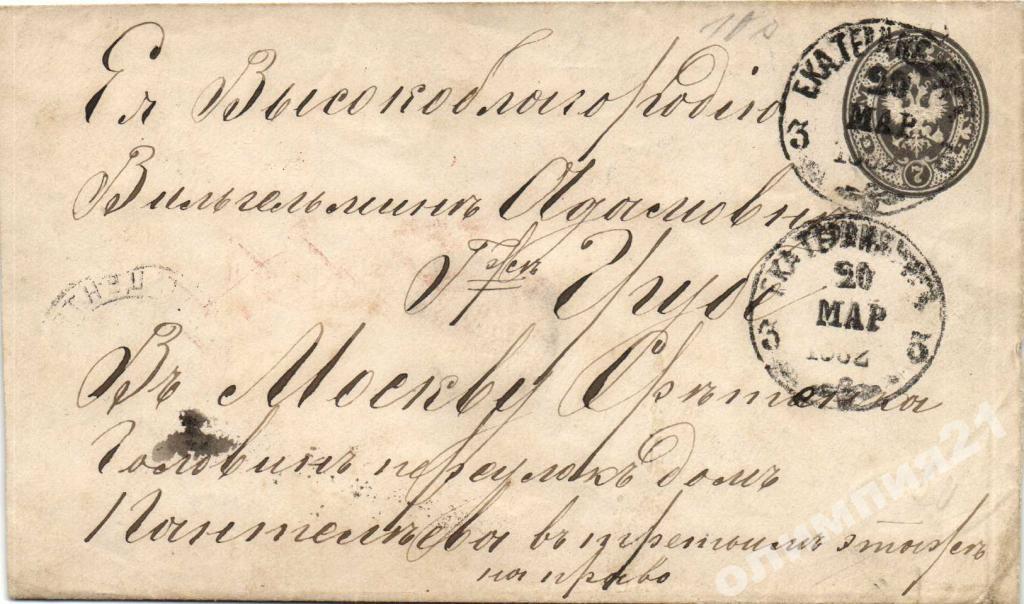 Ея Высокоблагородію
Вильгельминѣ Адамовнѣ
Грубе
Въ Москву Срѣтенка
Головинъ переулакъ домъ
Пантелѣева въ третьимъ этажѣ
на право
ЕКАТЕРИН
МАР
3
7
ЕКАТЕРИН
20
МАР
1882
3 5
олимпия21